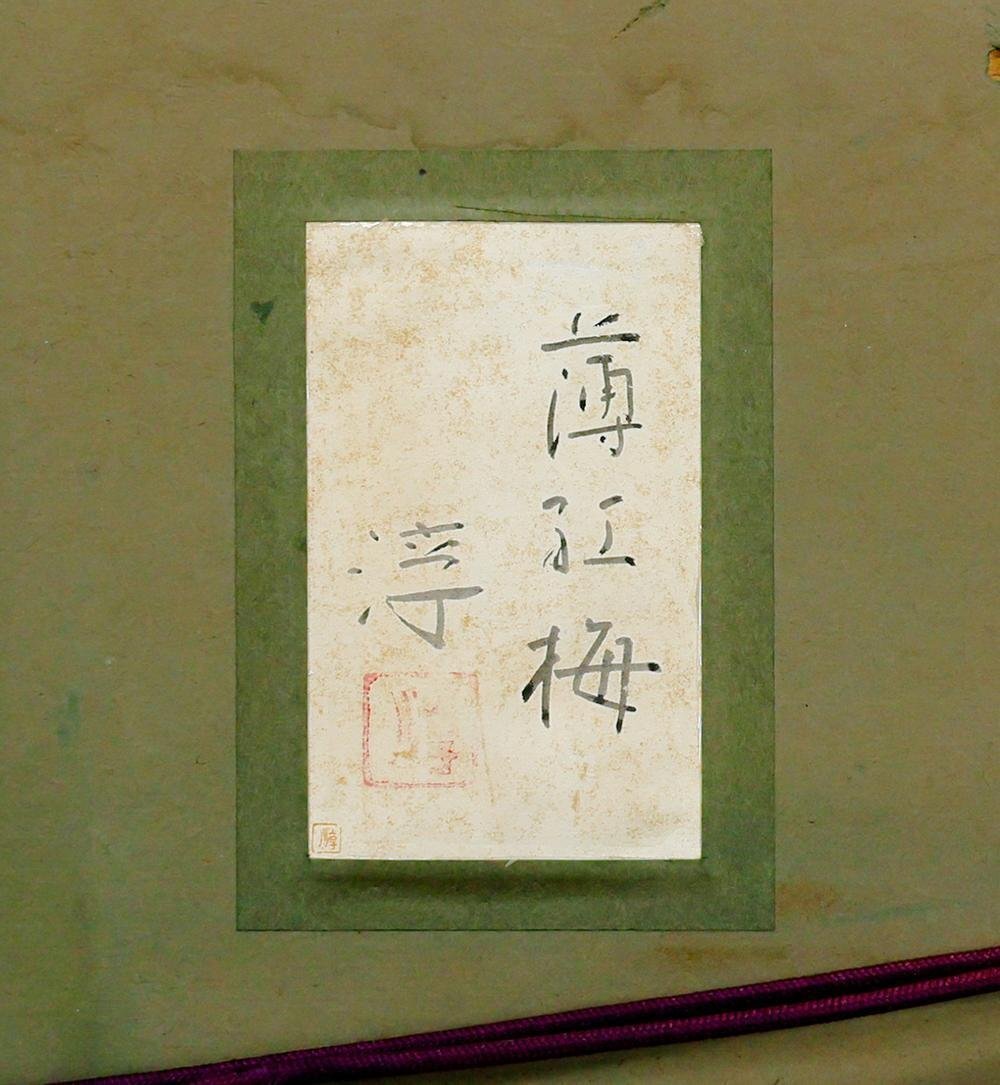 薄紅梅
淳